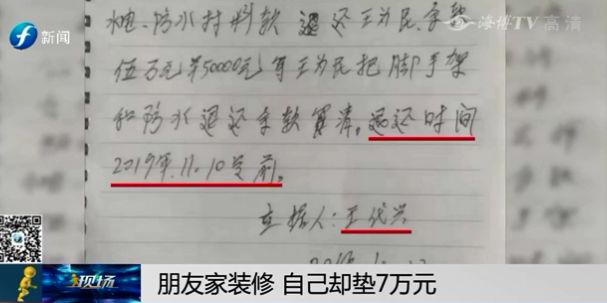 新闻
海博TV 高清
水电、防水材料款退还王为民、字据
伍万元羊50000元等王为民把脚手架
和防水退还余款算清。退还时间
2019年.11.10号前。
立据人:王代兴
现场
朋友家装修 自己却垫7万元